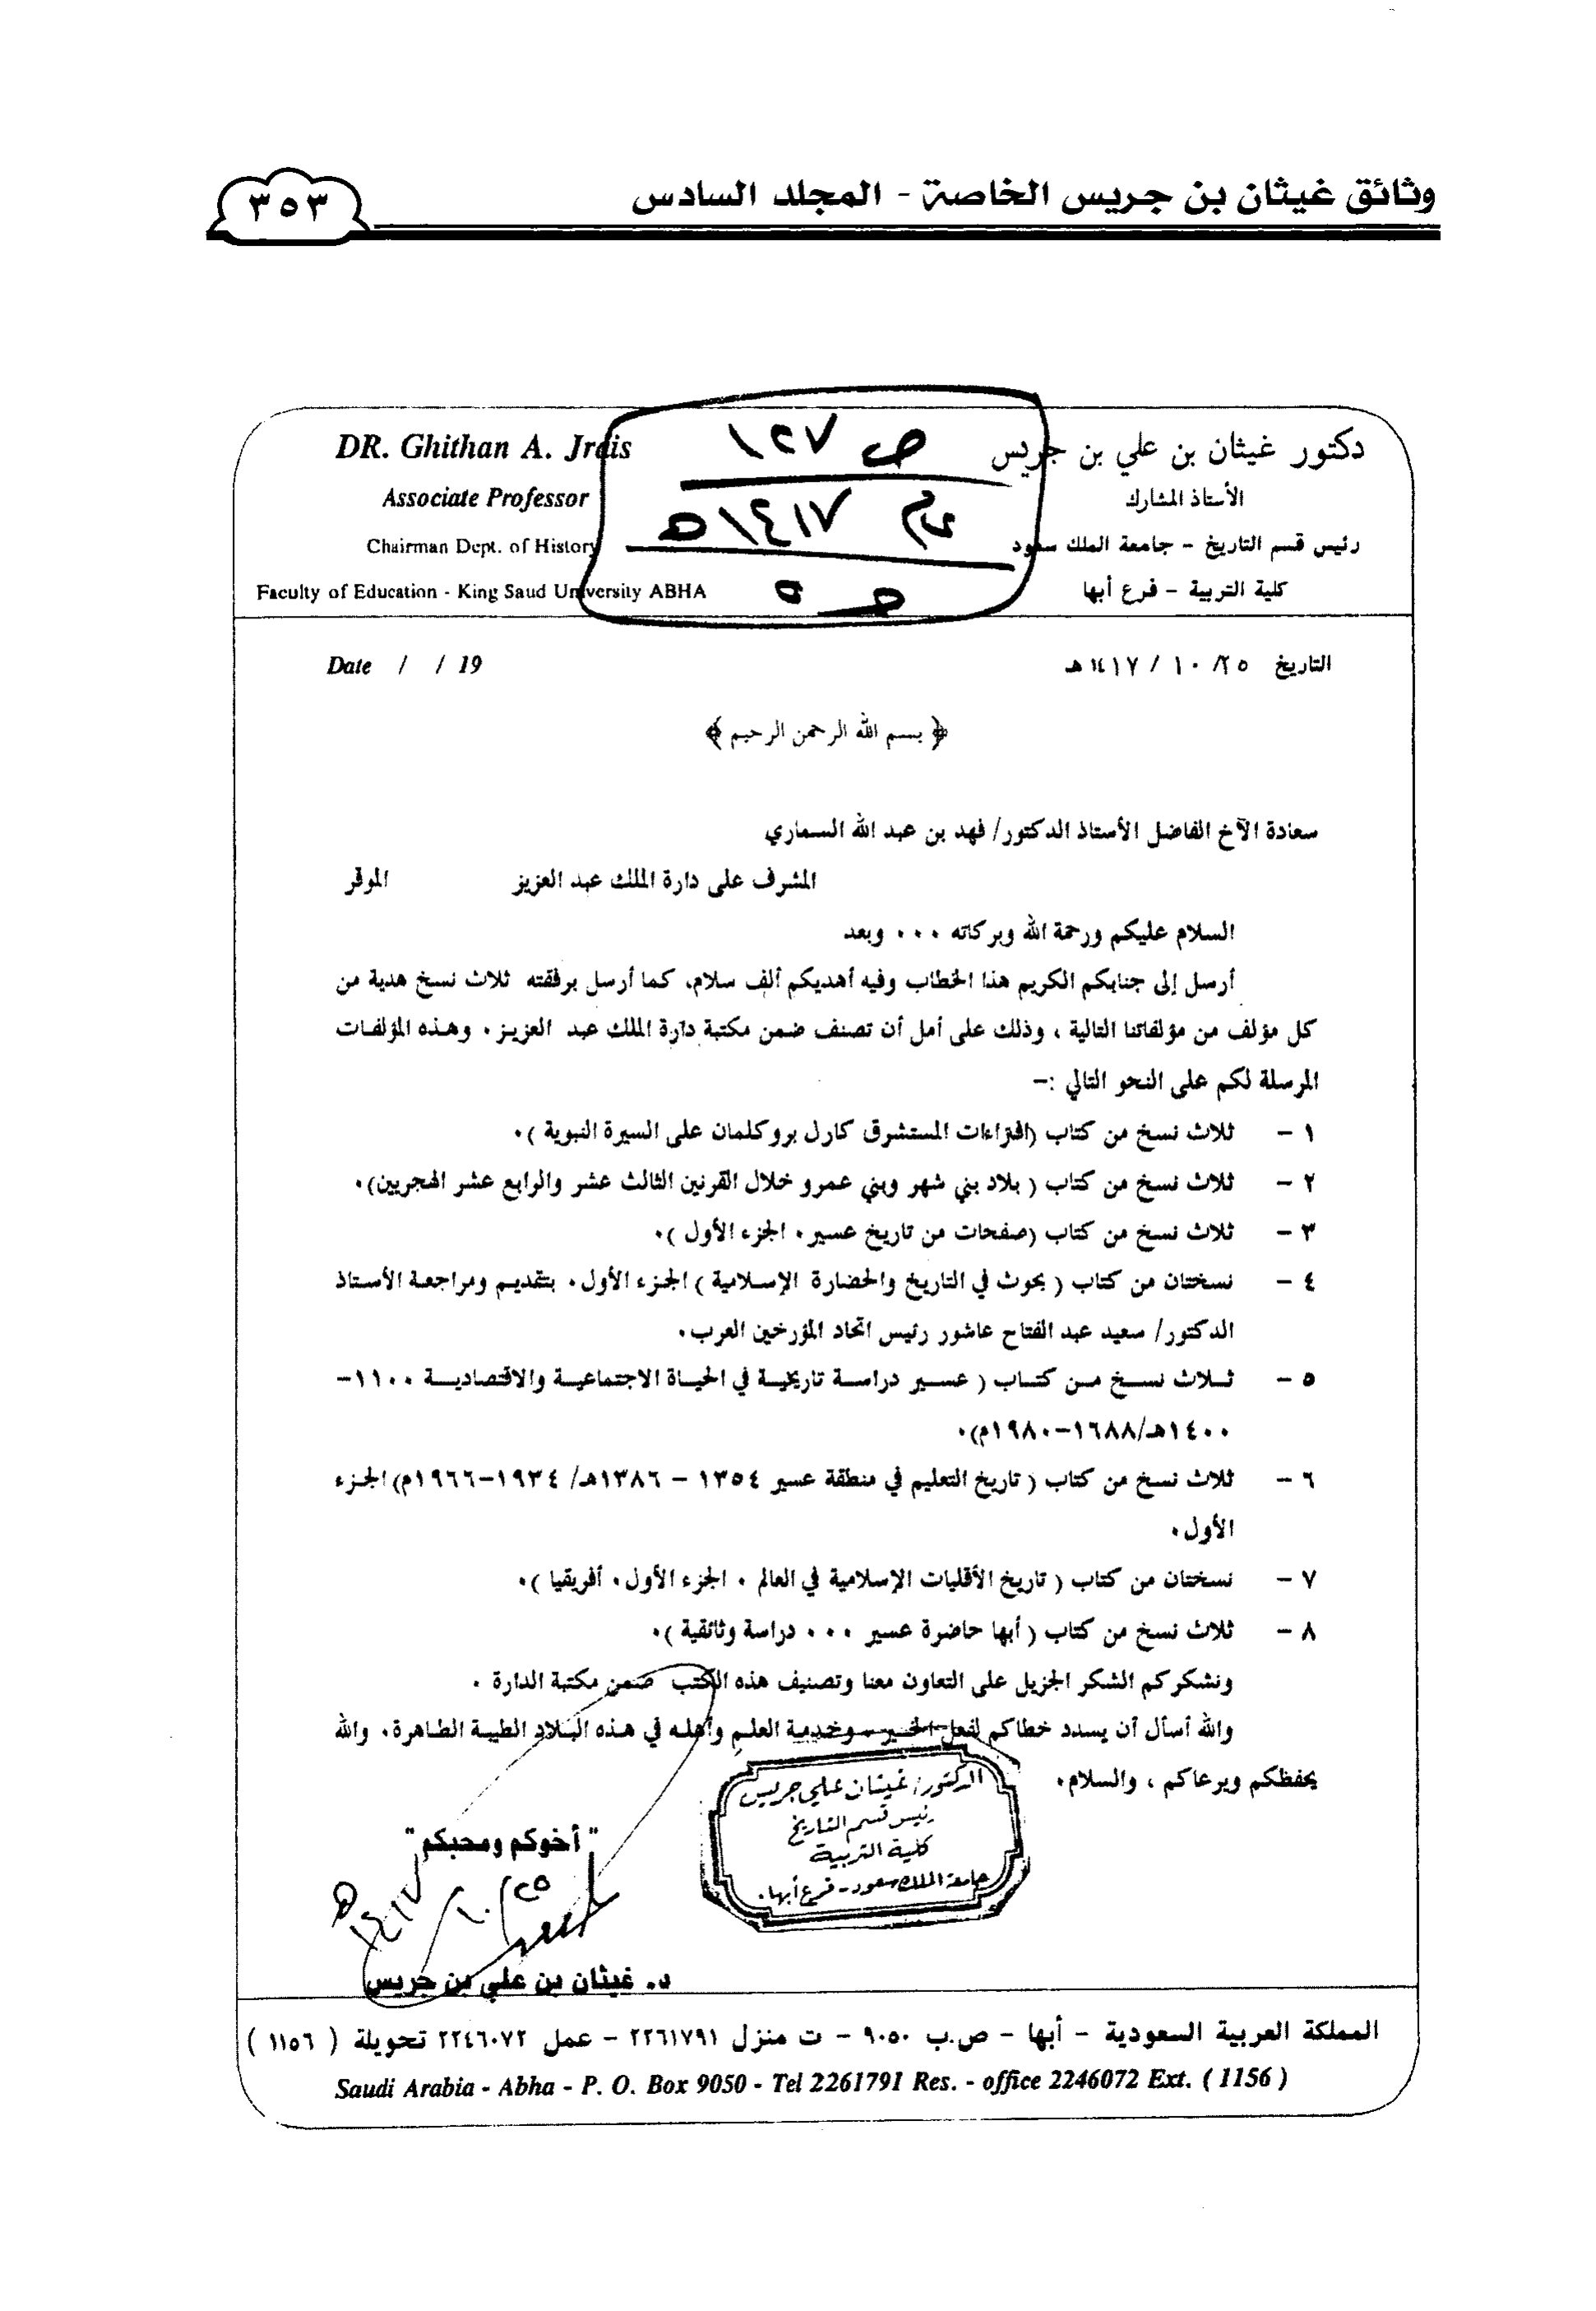 وثائق غيثان بن جريس الخاصة - المجلد السادس
٣٥٣
دكتور غيثان بن علي بن جريس
الأستاذ المشارك
رئيس قسم التاريخ - جامعة الملك سعود
كلية التربية - فرع أبها
ص ١٢٧
١٤١٧هـ
DR. Ghithan A. Jrais
Associate Professor
Chairman Dept. of History
Faculty of Education - King Saud University ABHA
التاريخ ٢٥/ ١٠ / ١٤١٧هـ
Date / / 19
﴿ بسم الله الرحمن الرحيم ﴾
سعادة الآخ الفاضل الأستاذ الدكتور/ فهد بن عبد الله السماري
المشرف على دارة الملك عبد العزيز الموقر
السلام عليكم ورحمة الله وبركاته ٠٠٠ وبعد
أرسل إلى جنابكم الكريم هذا الخطاب وفيه أهديكم ألف سلام، كما أرسل برفقته ثلاث نسخ هدية من
كل مؤلف من مؤلفاتنا التالية ، وذلك على أمل أن تصنف ضمن مكتبة دارة الملك عبد العزيز٠ وهذه المؤلفات
المرسلة لكم على النحو التالي :-
١ - ثلاث نسخ من كتاب (افتراءات المستشرق كارل بروكلمان على السيرة النبوية )٠
٢ - ثلاث نسخ من كتاب ( بلاد بني شهر وبني عمرو خلال القرنين الثالث عشر والرابع عشر الهجريين)٠
٣ - ثلاث نسخ من كتاب (صفحات من تاريخ عسير٠ الجزء الأول )٠
٤ - نسختان من كتاب ( بحوث في التاريخ والحضارة الإسلامية ) الجزء الأول٠ بتقديم ومراجعة الأستاذ
الدكتور/ سعيد عبد الفتاح عاشور رئيس اتحاد المؤرخين العرب٠
٥ - ثلاث نسخ من كتاب ( عسير دراسة تاريخية في الحياة الاجتماعية والاقتصادية ١١٠٠-
١٤٠٠هـ/١٦٨٨-١٩٨٠م)٠
٦ - ثلاث نسخ من كتاب ( تاريخ التعليم في منطقة عسير ١٣٥٤ - ١٣٨٦هـ/ ١٩٣٤-١٩٦٦م) الجزء
الأول٠
٧ - نسختان من كتاب ( تاريخ الأقليات الإسلامية في العالم ٠ الجزء الأول٠ أفريقيا )٠
٨ - ثلاث نسخ من كتاب ( أبها حاضرة عسير ٠٠٠ دراسة وثائقية )٠
ونشكركم الشكر الجزيل على التعاون معنا وتصنيف هذه الكتب ضمن مكتبة الدارة ٠
والله أسأل أن يسدد خطاكم لفعل الخير وخدمة العلم وأهله في هذه البلاد الطيبة الطاهرة٠ والله
يحفظكم ويرعاكم ، والسلام٠
الدكتور/ غيثان علي جريس
رئيس قسم التاريخ
كلية التربية
جامعة الملك سعود - فرع أبها٠
" أخوكم ومحبكم "
٢٥/١٠/١٤١٧هـ
د. غيثان بن علي بن جريس
المملكة العربية السعودية - أبها - ص.ب ٩٠٥٠ - ت منزل ٢٢٦١٧٩١ - عمل ٢٢٤٦٠٧٢ تحويلة ( ١١٥٦ )
Saudi Arabia - Abha - P. O. Box 9050 - Tel 2261791 Res. - office 2246072 Ext. ( 1156 )